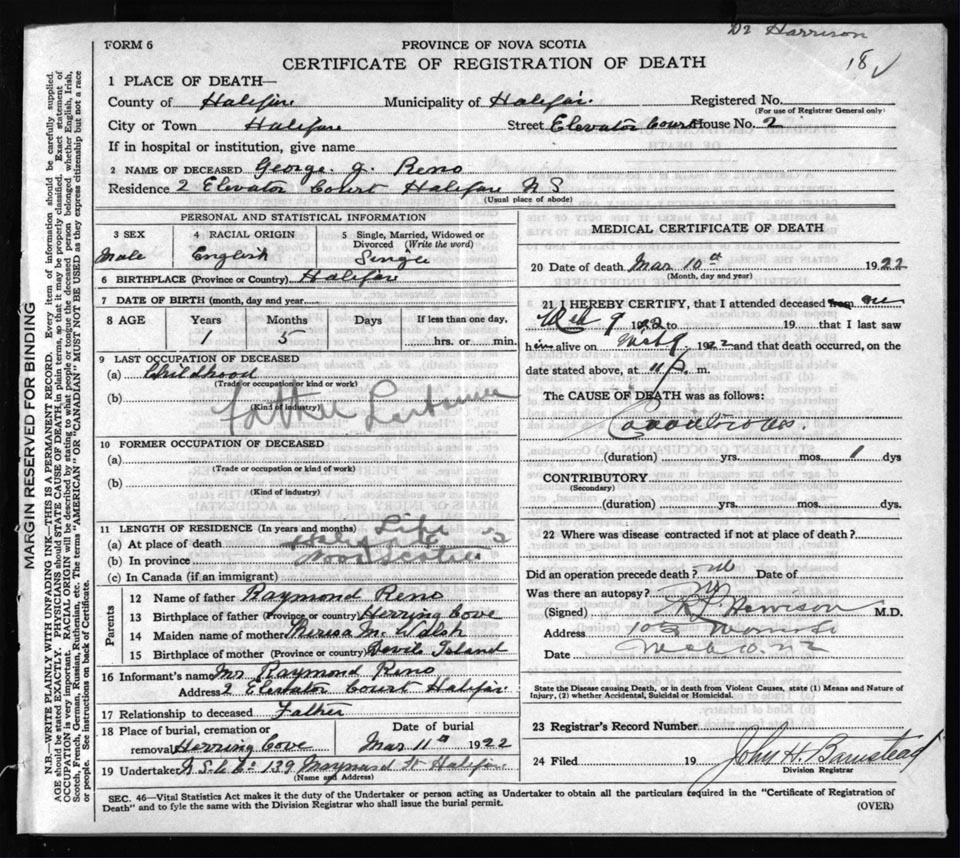 Dr Harrison
18 ✓
FORM 6
PROVINCE OF NOVA SCOTIA
CERTIFICATE OF REGISTRATION OF DEATH
1 PLACE OF DEATH—
County of Halifax Municipality of Halifax. Registered No.
(For use of Registrar General only)
City or Town Halifax Street Elevator Court House No. 2
If in hospital or institution, give name
2 NAME OF DECEASED George. J. Reno
Residence 2 Elevator Court Halifax N S
(Usual place of abode)
PERSONAL AND STATISTICAL INFORMATION
3 SEX
Male
4 RACIAL ORIGIN
English
5 Single, Married, Widowed or Divorced (Write the word)
Single
6 BIRTHPLACE (Province or Country) Halifax
7 DATE OF BIRTH (month, day and year)
8 AGE Years Months Days If less than one day,
1 5 hrs. or min.
9 LAST OCCUPATION OF DECEASED
(a) Childhood
(Trade or occupation or kind or work)
(b) father
(Kind of industry)
10 FORMER OCCUPATION OF DECEASED
(a)
(Trade or occupation or kind of work)
(b)
(Kind of industry)
11 LENGTH OF RESIDENCE (In years and months) Life
(a) At place of death
(b) In province Nova Scotia
(c) In Canada (if an immigrant)
Parents
12 Name of father Raymond Reno
13 Birthplace of father (Province or country) Herring Cove
14 Maiden name of mother M. Walsh
15 Birthplace of mother (Province or country) Devils Island
16 Informant's name Mr Raymond Reno
Address 2 Elevator Court Halifax.
17 Relationship to deceased Father
18 Place of burial, cremation or Date of burial
removal Herring Cove Mar 11th 1922
19 Undertaker N.S.U.Co 139 Maynard St Halifax
(Name and Address)
MEDICAL CERTIFICATE OF DEATH
20 Date of death Mar 10th 1922
(Month, day and year)
21 I HEREBY CERTIFY, that I attended deceased from on
9 1922 to 19 that I last saw
him alive on 9 1922 and that death occurred, on the
date stated above, at 11 P. m.
The CAUSE OF DEATH was as follows:
(duration) yrs. mos. 1 dys
CONTRIBUTORY
(Secondary)
(duration) yrs. mos. dys.
22 Where was disease contracted if not at place of death?
Did an operation precede death? no Date of
Was there an autopsy? no
(Signed) M.D.
Address
Date
State the Disease causing Death, or in death from Violent Causes, state (1) Means and Nature of
Injury, (2) whether Accidental, Suicidal or Homicidal.
23 Registrar's Record Number
24 Filed 19 John H. Barnstead
Division Registrar
SEC. 46—Vital Statistics Act makes it the duty of the Undertaker or person acting as Undertaker to obtain all the particulars required in the "Certificate of Registration of
Death" and to fyle the same with the Division Registrar who shall issue the burial permit.
(OVER)
MARGIN RESERVED FOR BINDING
N.B.—WRITE PLAINLY WITH UNFADING INK—THIS IS A PERMANENT RECORD. Every item of information should be carefully supplied.
AGE should be stated EXACTLY. PHYSICIANS should STATE CAUSE OF DEATH, in plain terms, so that it may be properly classified. Exact statement of
OCCUPATION is very important. RACIAL ORIGIN will be described by stating to what people or tongue the deceased person belonged, whether English, Irish,
Scotch, French, German, Russian, Ruthenian, etc. The terms "AMERICAN" or "CANADIAN" MUST NOT BE USED as they express citizenship but not a race
or people. See instructions on back of Certificate.